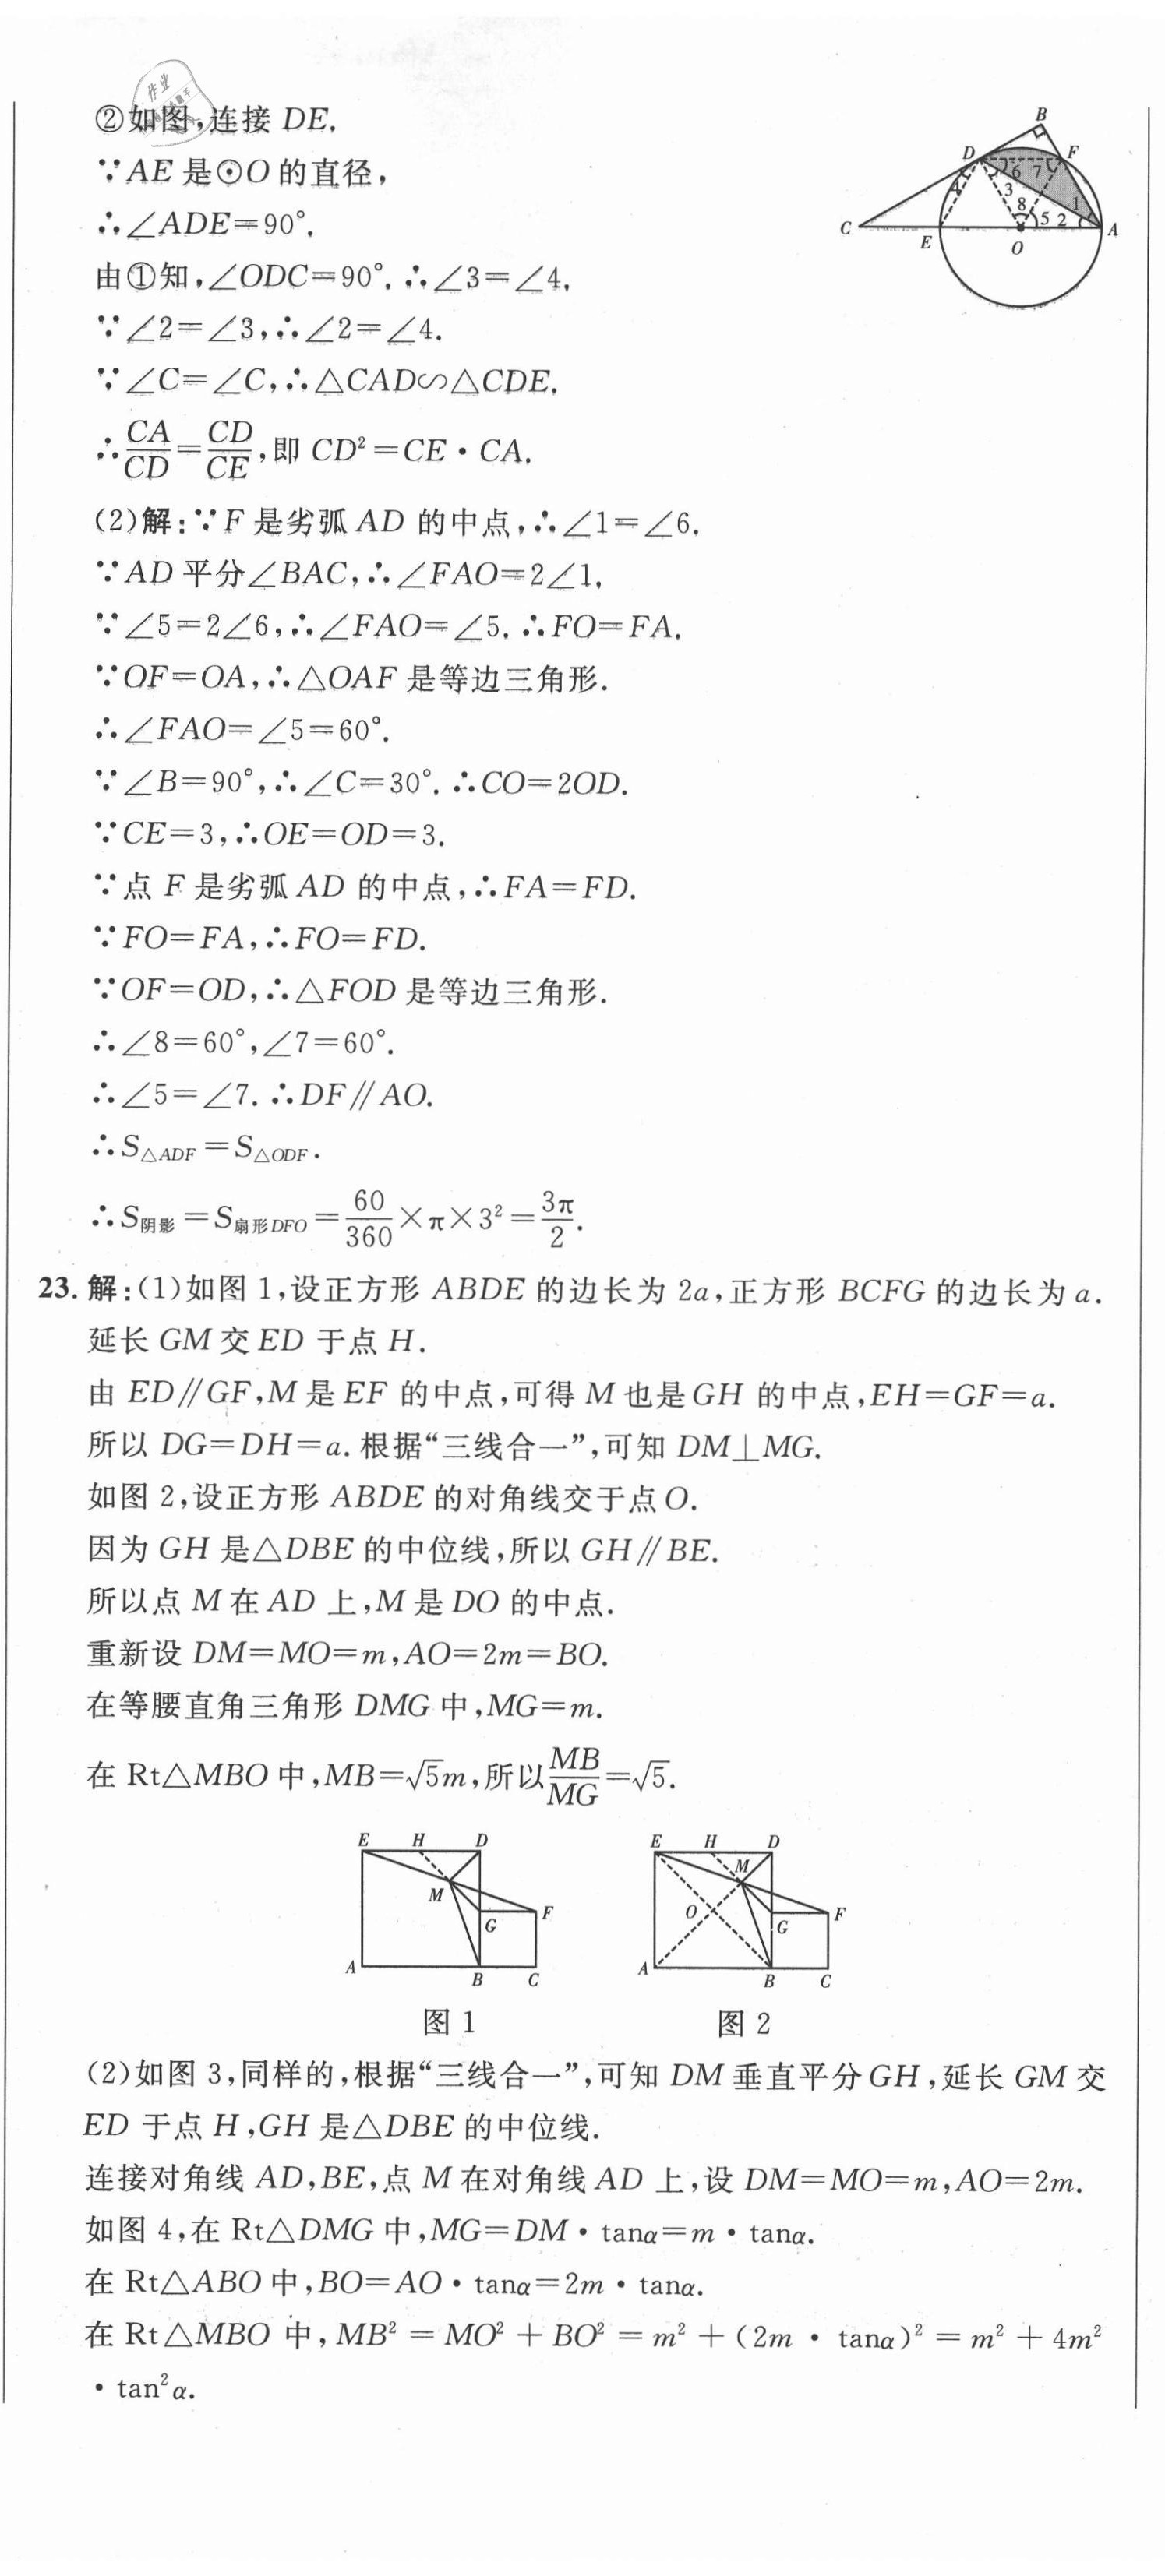 ②如图,连接 DE.
∵AE 是⊙O 的直径,
∴∠ADE=90°.
由①知,∠ODC=90°. ∴∠3=∠4.
∵∠2=∠3,∴∠2=∠4.
∵∠C=∠C,∴△CAD∽△CDE.
∴CA/CD=CD/CE,即 CD²=CE·CA.
B
D
F
4
6
7
3
8
1
C
5
2
A
E
O
(2)解:∵F 是劣弧 AD 的中点,∴∠1=∠6.
∵AD 平分∠BAC,∴∠FAO=2∠1.
∵∠5=2∠6,∴∠FAO=∠5. ∴FO=FA.
∵OF=OA,∴△OAF 是等边三角形.
∴∠FAO=∠5=60°.
∵∠B=90°,∴∠C=30°. ∴CO=2OD.
∵CE=3,∴OE=OD=3.
∵点 F 是劣弧 AD 的中点,∴FA=FD.
∵FO=FA,∴FO=FD.
∵OF=OD,∴△FOD 是等边三角形.
∴∠8=60°,∠7=60°.
∴∠5=∠7. ∴DF∥AO.
∴S△ADF=S△ODF.
∴S阴影=S扇形DFO=60/360×π×3²=3π/2.
23. 解:(1)如图 1,设正方形 ABDE 的边长为 2a,正方形 BCFG 的边长为 a.
延长 GM 交 ED 于点 H.
由 ED∥GF,M 是 EF 的中点,可得 M 也是 GH 的中点,EH=GF=a.
所以 DG=DH=a. 根据“三线合一”,可知 DM⊥MG.
如图 2,设正方形 ABDE 的对角线交于点 O.
因为 GH 是△DBE 的中位线,所以 GH∥BE.
所以点 M 在 AD 上,M 是 DO 的中点.
重新设 DM=MO=m,AO=2m=BO.
在等腰直角三角形 DMG 中,MG=m.
在 Rt△MBO 中,MB=√5m,所以MB/MG=√5.
E H D
M
G F
A B C
图 1
E H D
M
O
G F
A B C
图 2
(2)如图 3,同样的,根据“三线合一”,可知 DM 垂直平分 GH,延长 GM 交
ED 于点 H,GH 是△DBE 的中位线.
连接对角线 AD,BE,点 M 在对角线 AD 上,设 DM=MO=m,AO=2m.
如图 4,在 Rt△DMG 中,MG=DM·tanα=m·tanα.
在 Rt△ABO 中,BO=AO·tanα=2m·tanα.
在 Rt△MBO 中,MB²=MO²+BO²=m²+(2m·tanα)²=m²+4m²
·tan²α.